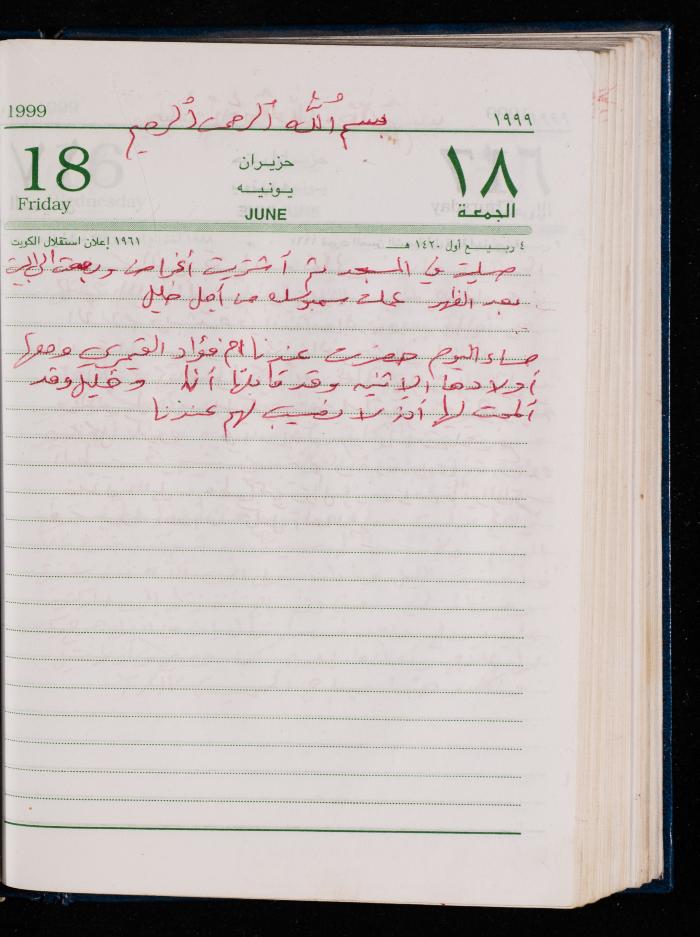 بسم الله الرحمن الرحيم
1999 ١٩٩٩
18 حزيران ١٨
Friday يونيه الجمعة
JUNE
٤ ربيع أول ١٤٢٠ هـ ١٩٦١ إعلان استقلال الكويت
صليت في المسجد ثم أشتريت أغراض ورجعت الى البيت
بعد الظهر عملت سمبوسك من أجل خليل
مساء اليوم حضرت عندنا ام فؤاد القيمري ومعها
أولادها الاثنين وقد قابلتها أنا وخليل وقد
ألمحت لها أن لا نصيب لهم عندنا